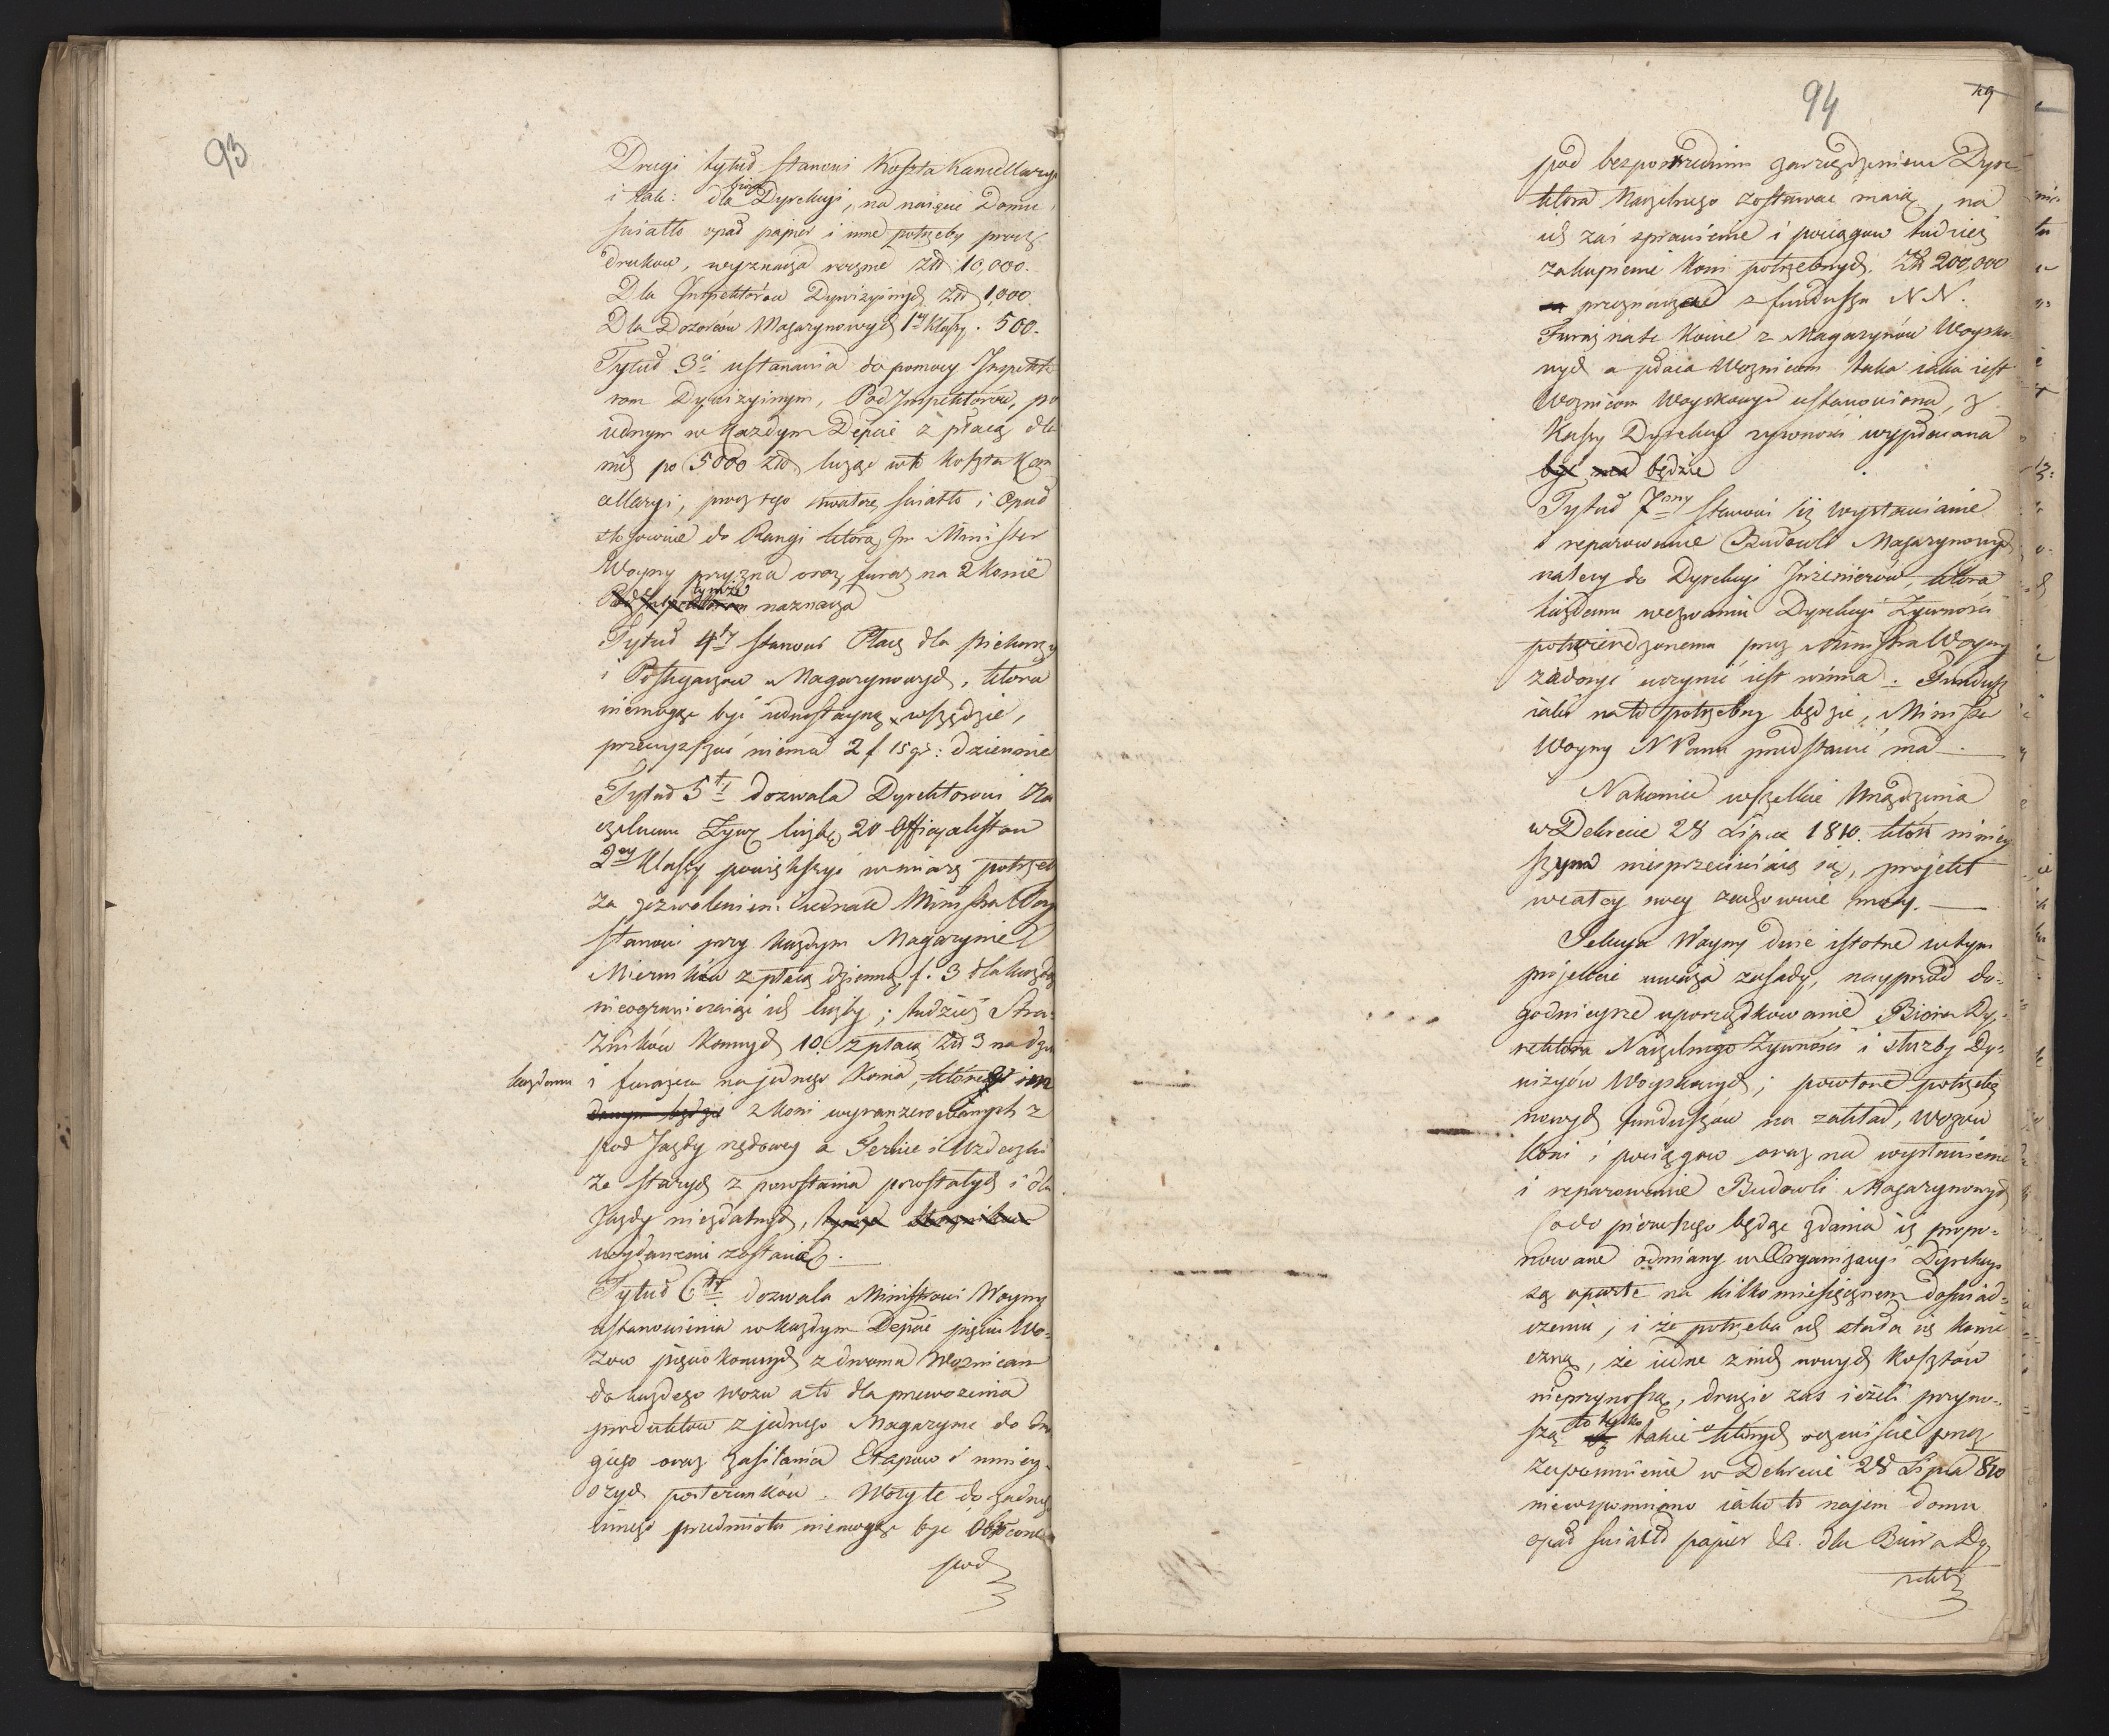 93
Drugi tytuł stanowi Koszta Kancellaryi
i tak: dla Biura Dyrekcyi, na naięcie Domu
światło opał papier i inne potrzeby procz
drukow, wyznacza roczne Złł 10,000.
Dla Inspektórow Dywizyinych Złł 1,000.
Dla Dozorców Magazynowych 1ey Klassy. 500.
Tytuł 3i ustanawia do pomocy Inspekto
rom Dywizyinym, Pod Inspektorów, po
iednym w każdym Depcie z płacą dla
nich po 5000 Złł licząc w to koszta Kan
cellaryi, procz tego kwaterę światło i Opał
stosownie do Rangi którą Im Minister
Woyny przyzna oraz furaż na 2 konie
Pod Inspektorom tymże naznacza
Tytuł 4ty stanowi Płacę dla piekarzy
i Posługaczow Magazynowych, która
niemogąc być iednostayną wszędzie,
przewyższać niema 2 f 15 gr: dziennie
Tytuł 5ty dozwala Dyrektorowi Na
czelnemu Żywn liczbę 20 Officyalistow
2ey Klassy powiększyć w miarę potrzeb
za zezwoleniem iednak Ministra Woy
stanowi przy każdym Magazynie
Mierników z płacą dzienną f. 3 dla każdego
nieograniczaiąc ich liczby; tudzież Stra-
żników konnych 10. z płacą Złł 3 na dzień
każdemu i furażem na jednego Konia, którego im
danym będzie z koni wyranżerowanych z
pod Jazdy rządowey a Terlice i Uzdeczki
ze starych z powstania pozostałych i dla
Jazdy niezdatnych, tymże strażnikom
wydanemi zostaną.
Tytuł 6ty dozwala Ministrowi Woyny
ustanowienia w każdym Depcie pięciu Wo-
zow pięciokonnych z dwoma Woznicami
do każdego wozu a to dla przewozenia
produktow z jednego Magazynu do dru
giego oraz zasilania Etapow i mniey-
szych posterunków. Wozy te do żadnego
innego przedmiotu niemogąc być obrócone
pod
94
49
pod bezpośrednim zarządzeniem Dyre-
ktora Naczelnego zostawać maią, na
ich zaś sprawienie i pociągow tudzież
zakupienie koni potrzebnych. Złł 200,000
są przeznaczone z funduszu NN.
Furaż na te konie z Magazynów Woysko-
wych a płaca Woznicom taka iaka iest
Woznicom Woyskowym ustanowiona, z
Kassy Dyrekcyi żywności wypłacana
być ma będzie
Tytuł 7my stanowi iż wystawianie
i reparowanie Budowli Magazynowych
należy do Dyrekcyi Inżenierów, która
każdemu wezwaniu Dyrekcyi Żywności
potwierdzonemu przez Ministra Woyny
zadosyć uczynić iest winna. Fundusz
iaki na to potrzebny będzie, Minister
Woyny N Panu przedstawić ma.
Nakoniec wszelkie Urządzenia
w Dekrecie 28 Lipca 1810. które niniey
szym nieprzeciwiaią się, projekt
w całey swey zachowuie mocy.
Sekcya Woyny dwie istotne w tym
projekcie uważa zasady, nayprzód do-
godnieysze uporządkowanie Biora Dy-
rektora Naczelnego Żywności i służby Dy-
wizyów Woyskowych; powtore potrzebę
nowych funduszów na zakład, wozów
koni i pociągow oraz na wystawienie
i reparowanie Budowli Magazynowych
Co do pierwszego będąc zdania iż propo-
nowane odmiany w Organizacyi Dyrekcyi
są oparte na kilko miesięcznem doświad-
czeniu; i że potrzeba ich stała się konie
czną, że iedne z nich nowych kosztów
nieprzynoszą, drugie zaś ieżeli przyno-
szą to tylko takie o których oczywiście przez
zapomnienie w Dekrecie 28 Lipca 810
niewspomniano iako to najem domu
opał światło papier &c. dla Biura Dy
rekto